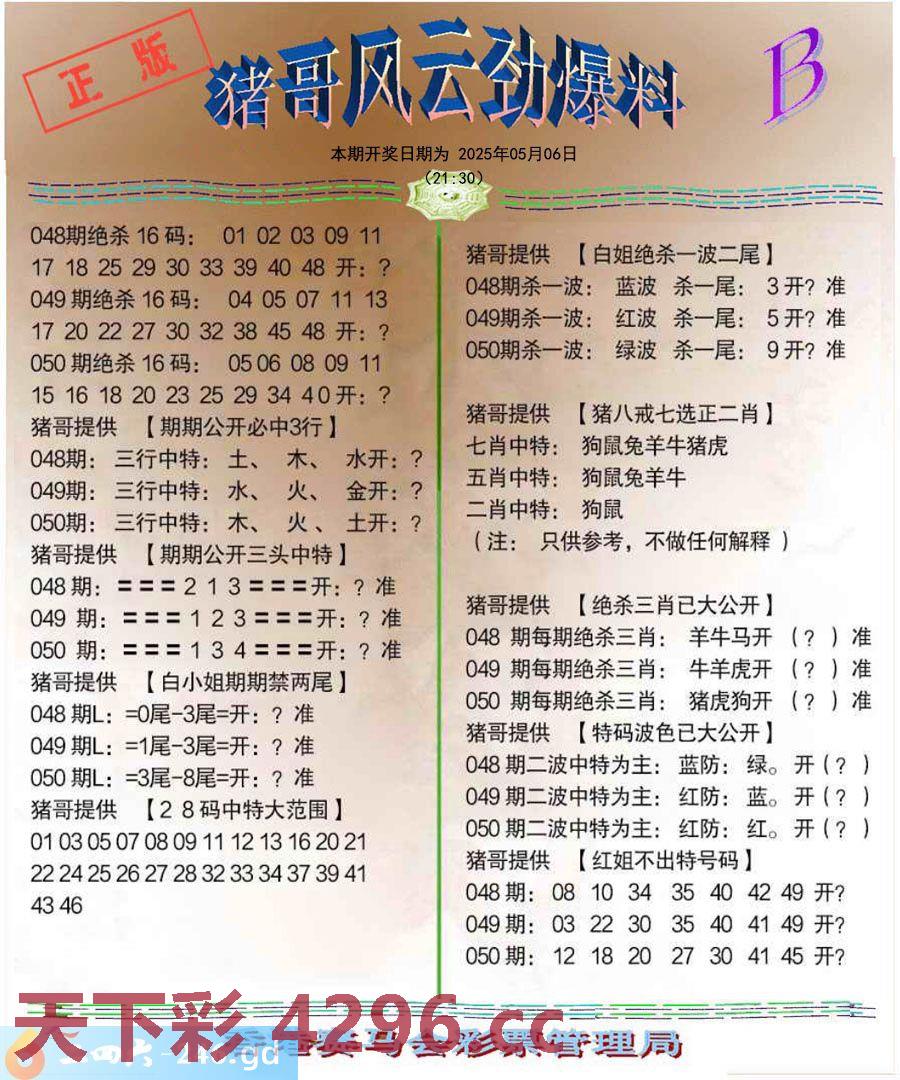 正版
猪哥风云劲爆料
B
本期开奖日期为 2025年05月06日
(21:30)
048期绝杀16码: 01 02 03 09 11
17 18 25 29 30 33 39 40 48 开:?
049期绝杀16码: 04 05 07 11 13
17 20 22 27 30 32 38 45 48 开:?
050期绝杀16码: 05 06 08 09 11
15 16 18 20 23 25 29 34 40开:?
猪哥提供 【期期公开必中3行】
048期: 三行中特: 土、 木、 水开:?
049期: 三行中特: 水、 火、 金开:?
050期: 三行中特: 木、 火、 土开:?
猪哥提供 【期期公开三头中特】
048期: ===213===开:?准
049期: ===123===开:?准
050期: ===134===开:?准
猪哥提供 【白小姐期期禁两尾】
048期L: =0尾-3尾=开:?准
049期L: =1尾-3尾=开:?准
050期L: =3尾-8尾=开:?准
猪哥提供 【28码中特大范围】
01 03 05 07 08 09 11 12 13 16 20 21
22 24 25 26 27 28 32 33 34 37 39 41
43 46
猪哥提供 【白姐绝杀一波二尾】
048期杀一波: 蓝波 杀一尾: 3开?准
049期杀一波: 红波 杀一尾: 5开?准
050期杀一波: 绿波 杀一尾: 9开?准
猪哥提供 【猪八戒七选正二肖】
七肖中特: 狗鼠兔羊牛猪虎
五肖中特: 狗鼠兔羊牛
二肖中特: 狗鼠
(注: 只供参考,不做任何解释)
猪哥提供 【绝杀三肖已大公开】
048 期每期绝杀三肖: 羊牛马开 (?)准
049 期每期绝杀三肖: 牛羊虎开 (?)准
050 期每期绝杀三肖: 猪虎狗开 (?)准
猪哥提供 【特码波色已大公开】
048期二波中特为主: 蓝防: 绿。开(?)
049期二波中特为主: 红防: 蓝。开(?)
050期二波中特为主: 红防: 红。开(?)
猪哥提供 【红姐不出特号码】
048期: 08 10 34 35 40 42 49 开?
049期: 03 22 30 35 40 41 49 开?
050期: 12 18 20 27 30 41 45 开?
天下彩 4296.cc
马会彩票管理局